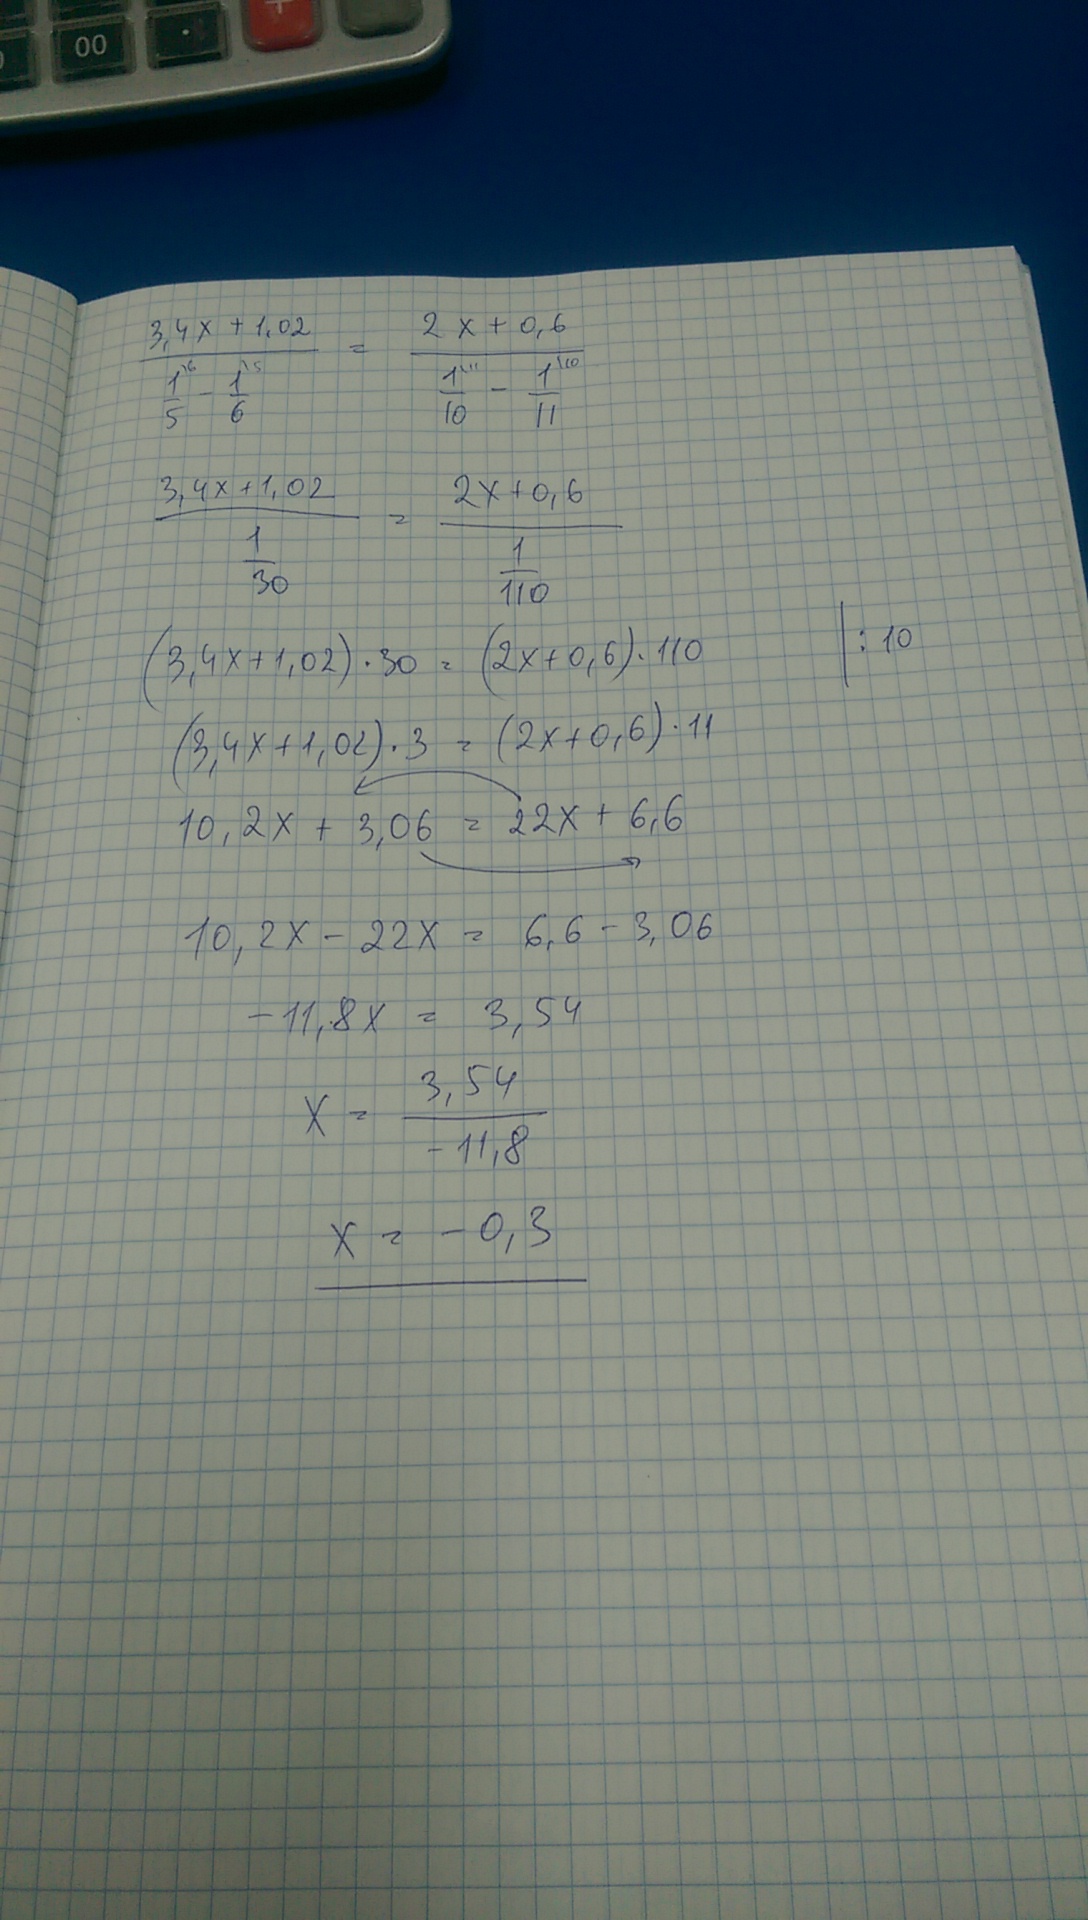 00 . +
3,4x + 1,02 / (1\6/5 - 1\5/6) = 2x + 0,6 / (1\11/10 - 1\10/11)
3,4x + 1,02 / (1/30) = 2x + 0,6 / (1/110)
(3,4x + 1,02) · 30 = (2x + 0,6) · 110 | : 10
(3,4x + 1,02) · 3 = (2x + 0,6) · 11
10,2x + 3,06 = 22x + 6,6
10,2x - 22x = 6,6 - 3,06
-11,8x = 3,54
x = 3,54 / -11,8
x = -0,3